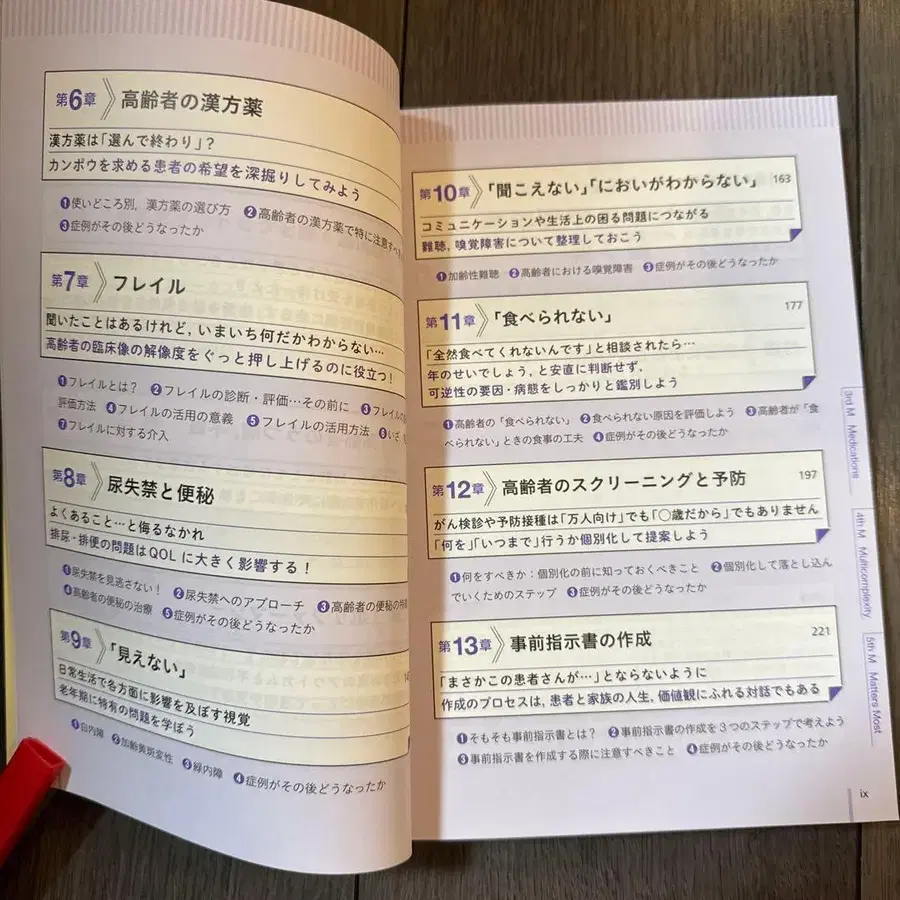 第6章 高齢者の漢方薬
漢方薬は「選んで終わり」？
カンポウを求める患者の希望を深掘りしてみよう
❶使いどころ別，漢方薬の選び方 ❷高齢者の漢方薬で特に注意すべ
❸症例がその後どうなったか
第7章 フレイル
聞いたことはあるけれど，いまいち何だかわからない…
高齢者の臨床像の解像度をぐっと押し上げるのに役立つ！
❶フレイルとは？ ❷フレイルの診断・評価…その前に ❸フレイルの
評価方法 ❹フレイルの活用の意義 ❺フレイルの活用方法 ❻いざ
❼フレイルに対する介入
第8章 尿失禁と便秘
よくあること…と侮るなかれ
排尿・排便の問題はQOLに大きく影響する！
❶尿失禁を見逃さない！ ❷尿失禁へのアプローチ ❸高齢者の便秘の特徴
❹高齢者の便秘の治療 ❺症例がその後どうなったか
第9章 「見えない」
日常生活で各方面に影響を及ぼす視覚
老年期に特有の問題を学ぼう
❶白内障 ❷加齢黄斑変性 ❸緑内障 ❹症例がその後どうなったか
第10章 「聞こえない」「においがわからない」 163
コミュニケーションや生活上の困る問題につながる
難聴，嗅覚障害について整理しておこう
❶加齢性難聴 ❷高齢者における嗅覚障害 ❸症例がその後どうなったか
第11章 「食べられない」 177
「全然食べてくれないんです」と相談されたら…
年のせいでしょう，と安直に判断せず，
可逆性の要因・病態をしっかりと鑑別しよう
❶高齢者の「食べられない」 ❷食べられない原因を評価しよう ❸高齢者が「食
べられない」ときの食事の工夫 ❹症例がその後どうなったか
第12章 高齢者のスクリーニングと予防 197
がん検診や予防接種は「万人向け」でも「○歳だから」でもありません
「何を」「いつまで」行うか個別化して提案しよう
❶何をすべきか：個別化の前に知っておくべきこと ❷個別化して落とし込ん
でいくためのステップ ❸症例がその後どうなったか
第13章 事前指示書の作成 221
「まさかこの患者さんが…」とならないように
作成のプロセスは，患者と家族の人生，価値観にふれる対話でもある
❶そもそも事前指示書とは？ ❷事前指示書の作成を3つのステップで考えよう
❸事前指示書を作成する際に注意すべきこと ❹症例がその後どうなったか
3rd M Medications
4th M Multicomplexity
5th M Matters Most
ix